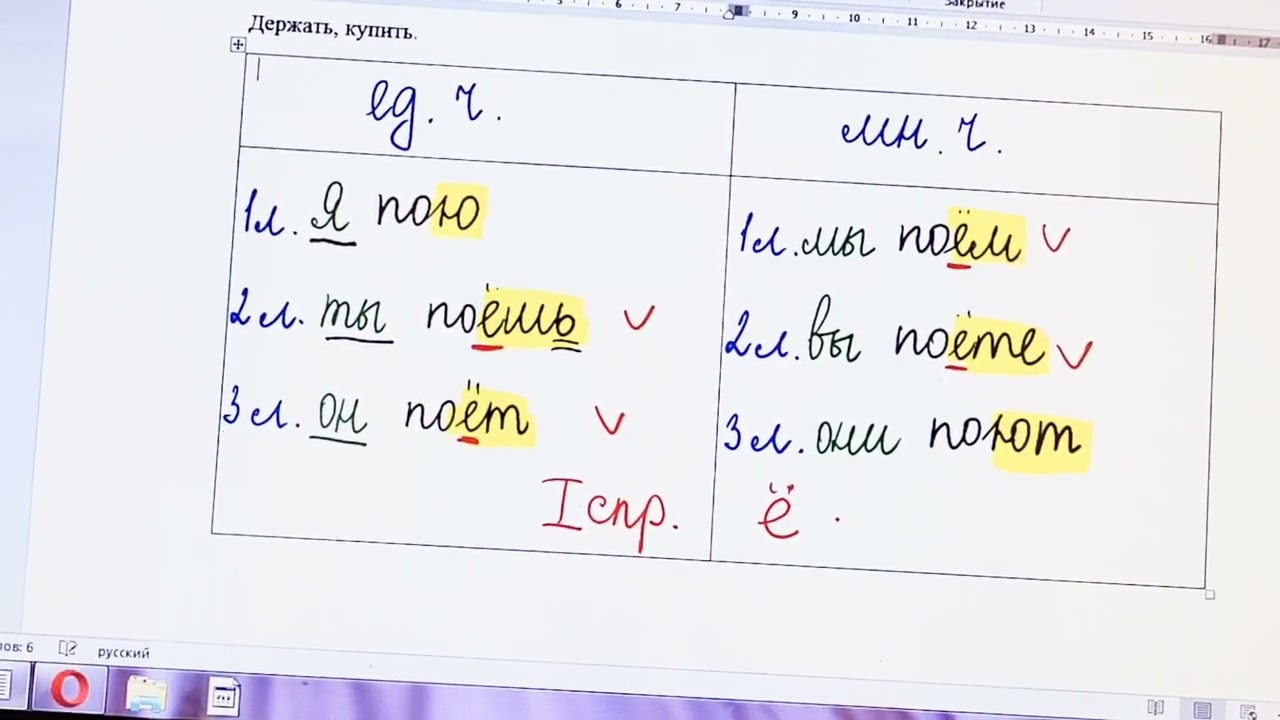 закрытие
6 7 9 10 11 12 13 14 15 16 17
Держать, купить.
ед. ч.
мн. ч.
1л. Я пою
2л. ты поёшь
3л. он поёт
I спр.
1л. мы поём
2л. вы поёте
3л. они поют
ё
ов: 6
русский